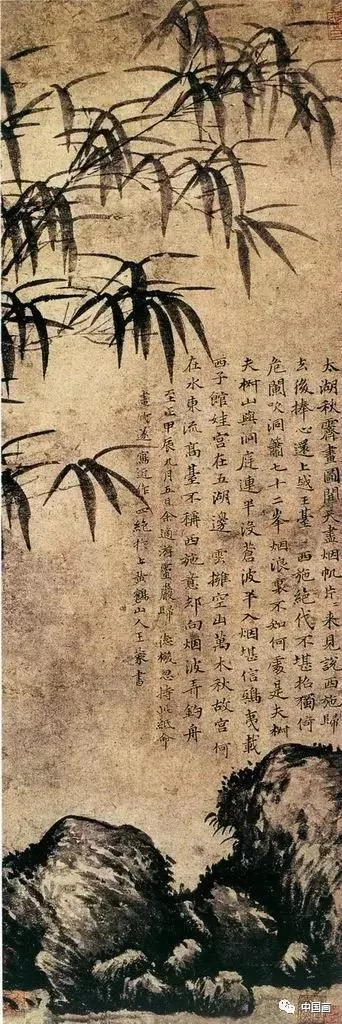 太湖秋霽畫圖開天盡烟帆片〻來見說西施歸
去後捧心還上越王臺 西施絕代不堪招獨倚
危闌吹洞簫七十二峯烟浪裏不知何處是夫椒
夫椒山與洞庭連半沒蒼波半入烟堪信鴟夷載
西子館娃宮在五湖邊 雲擁空山萬木秋故宮何
在水東流高臺不稱西施意却向烟波弄釣舟
至正甲辰九月五日余適游靈巖歸德機忽持此紙命
畫竹遂寫近作四絕於上黃鶴山人王蒙書
中国画